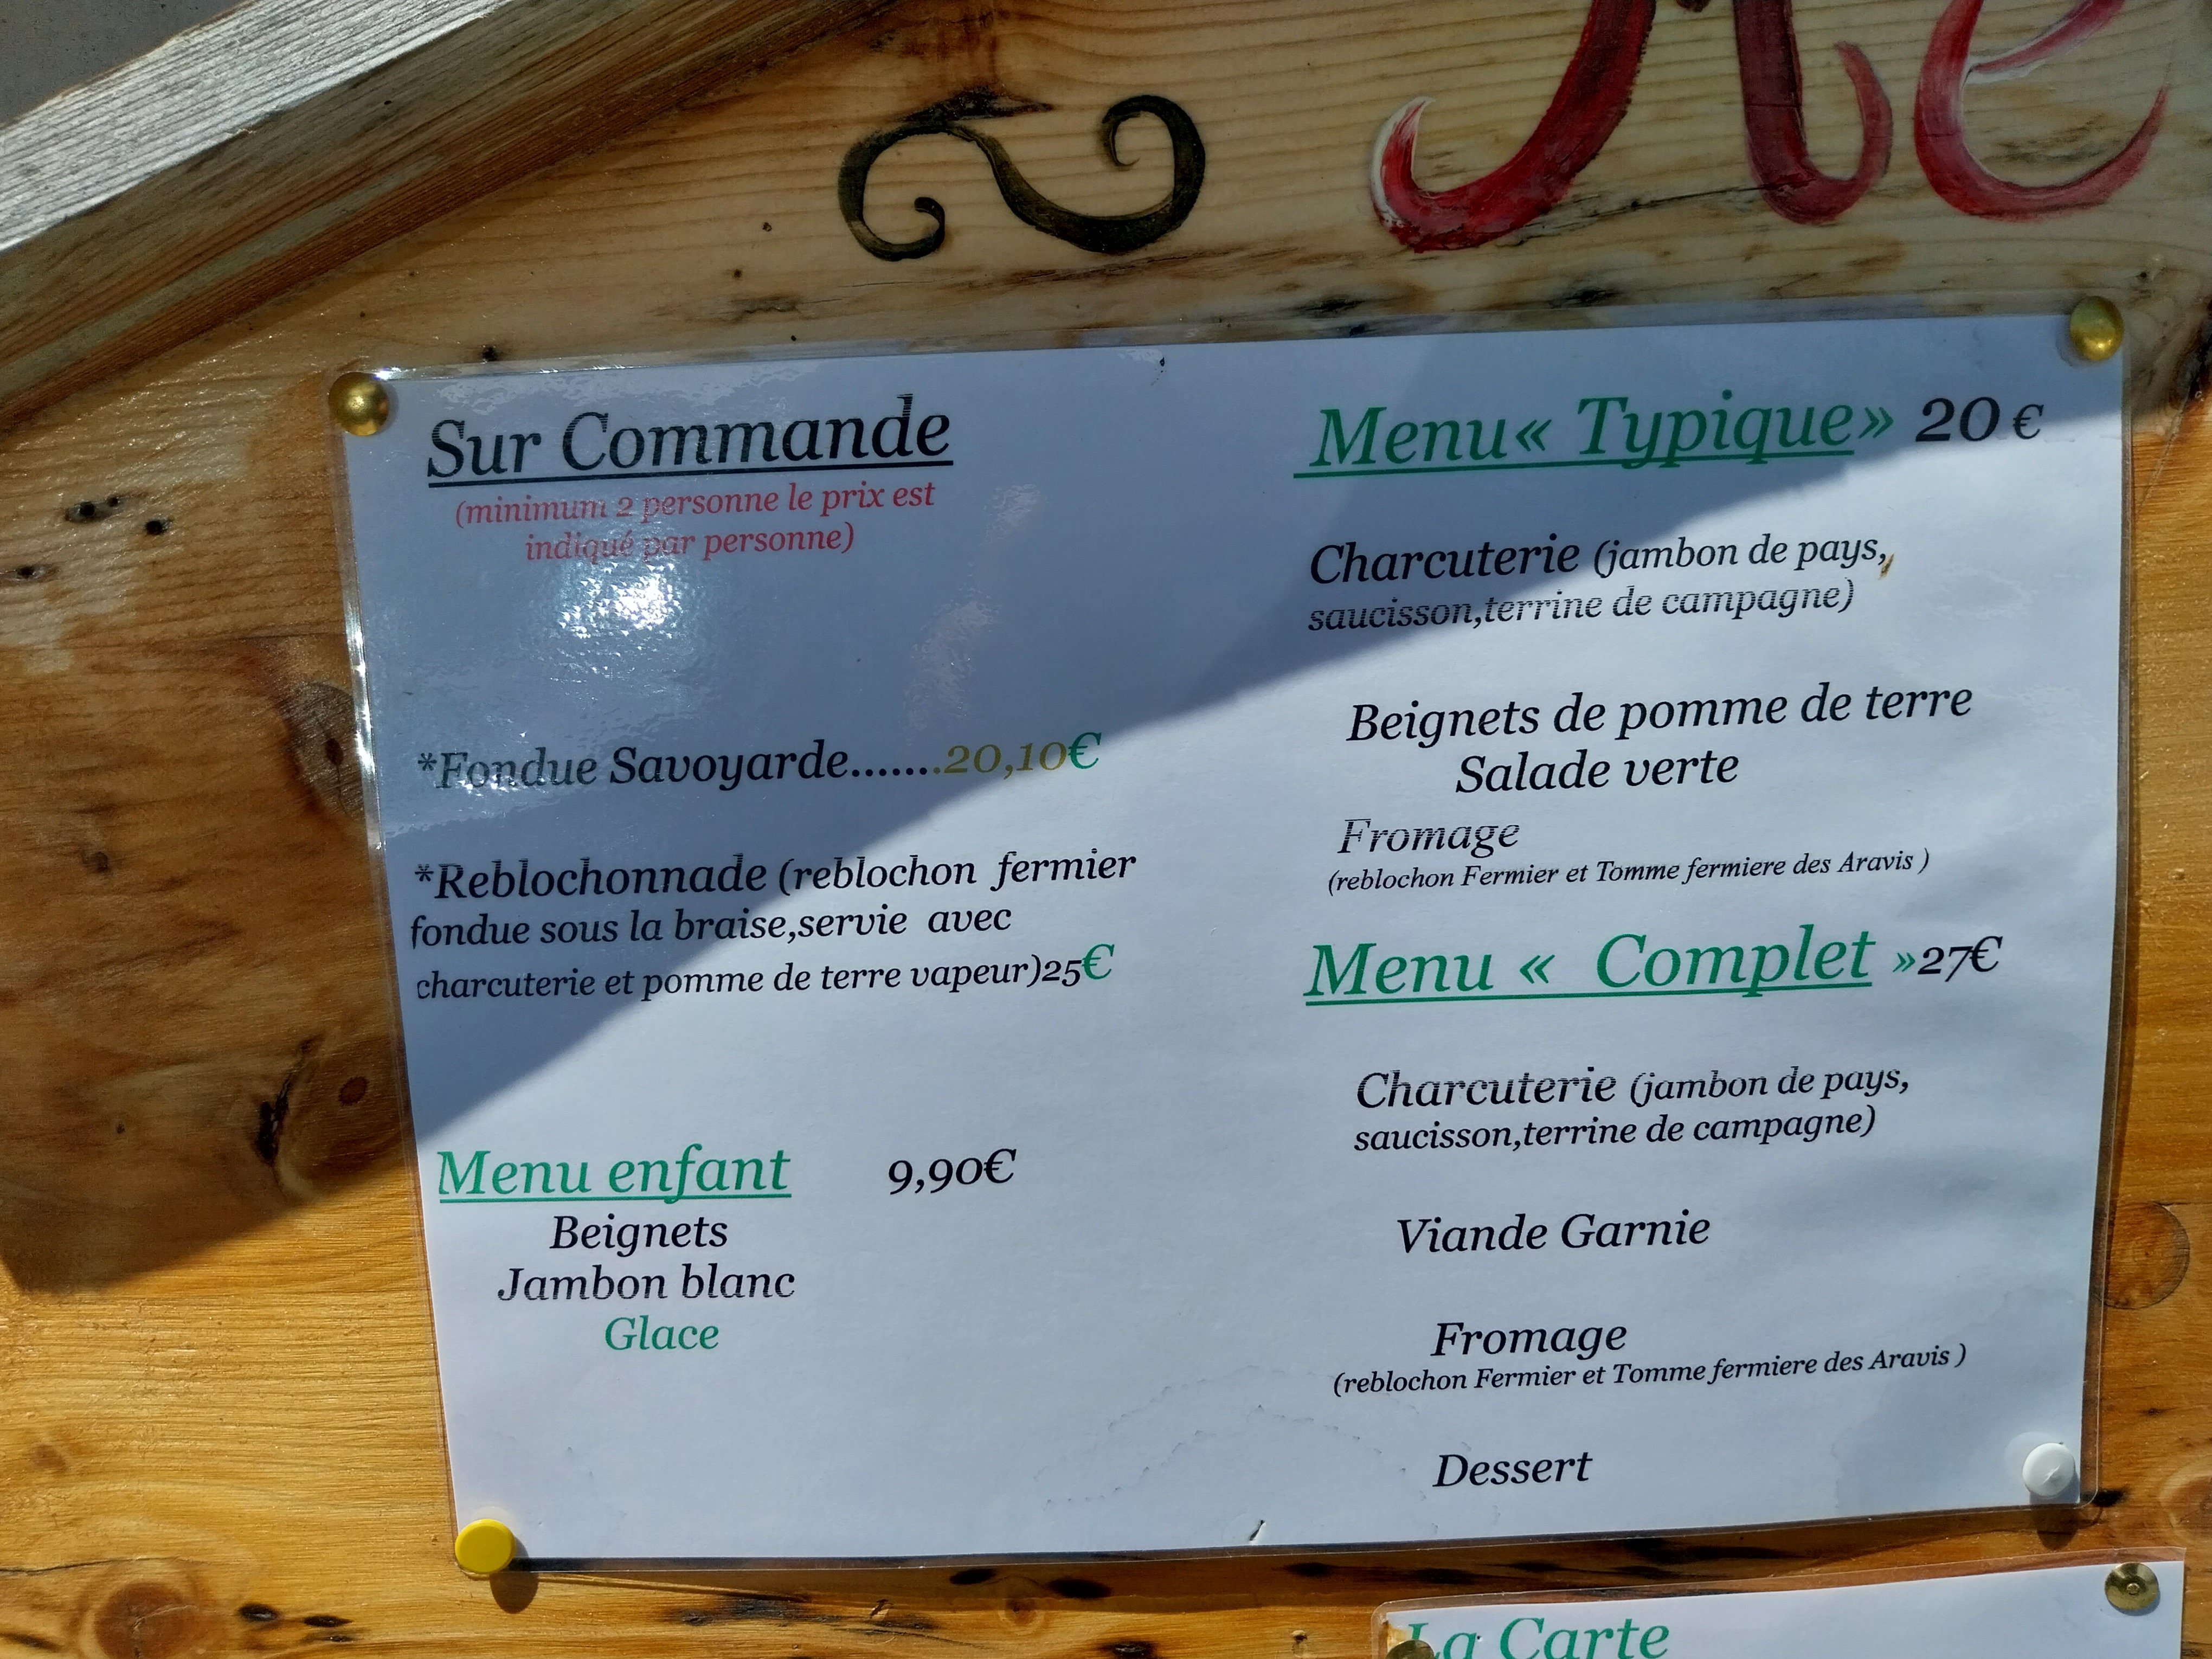 Sur Commande
(minimum 2 personne le prix est
indiqué par personne)
*Fondue Savoyarde.......20,10€
*Reblochonnade (reblochon fermier
fondue sous la braise,servie avec
charcuterie et pomme de terre vapeur)25€
Menu enfant 9,90€
Beignets
Jambon blanc
Glace
Menu« Typique» 20 €
Charcuterie (jambon de pays,
saucisson,terrine de campagne)
Beignets de pomme de terre
Salade verte
Fromage
(reblochon Fermier et Tomme fermiere des Aravis )
Menu « Complet »27€
Charcuterie (jambon de pays,
saucisson,terrine de campagne)
Viande Garnie
Fromage
(reblochon Fermier et Tomme fermiere des Aravis )
Dessert
La Carte